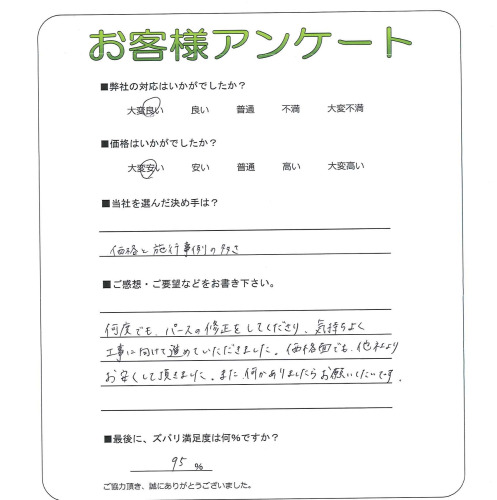 お客様アンケート
■弊社の対応はいかがでしたか?
大変良い 良い 普通 不満 大変不満
■価格はいかがでしたか?
大変安い 安い 普通 高い 大変高い
■当社を選んだ決め手は?
価格と施行事例の多さ
■ご感想・ご要望などをお書き下さい。
何度でも、パースの修正をしてくださり、気持ちよく
工事に向けて進めていただきました。価格面でも、他社より
お安くして頂きました。また何かありましたらお願いしたいです。
■最後に、ズバリ満足度は何%ですか?
95 %
ご協力頂き、誠にありがとうございました。